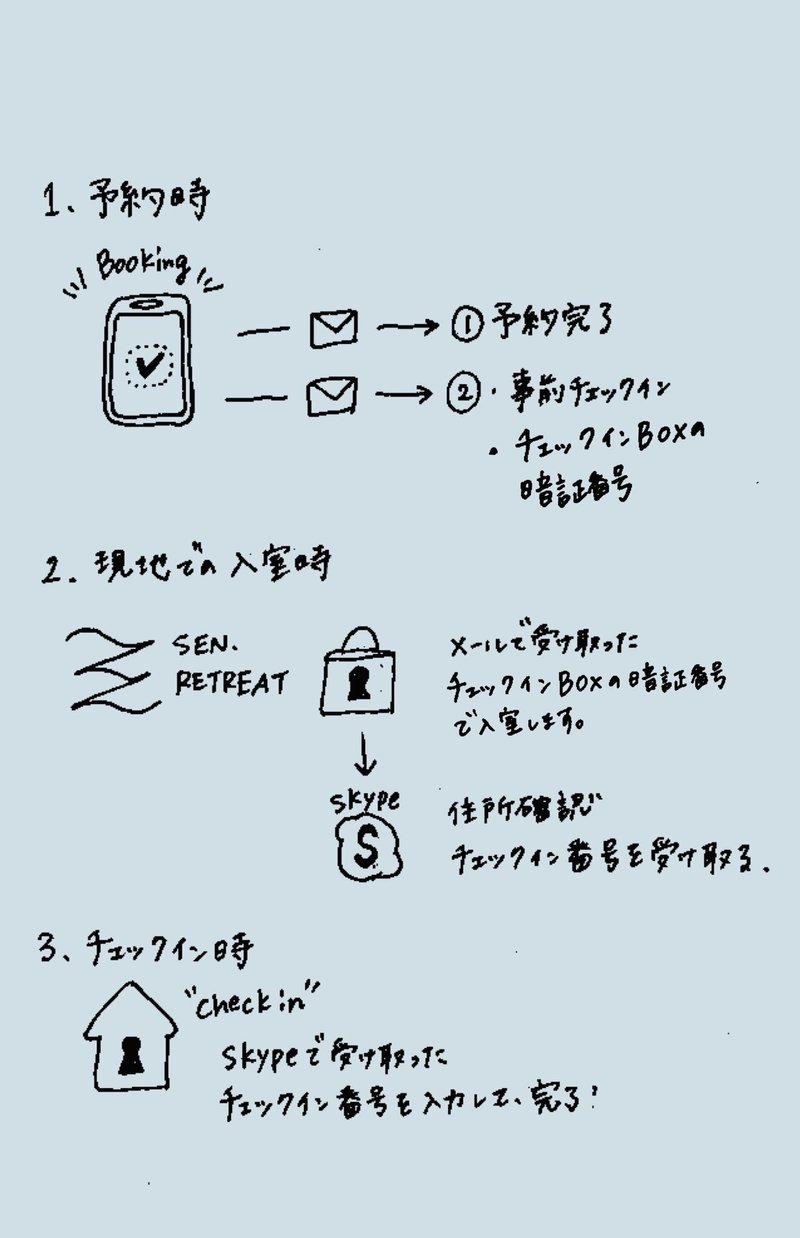 1、予約時
Booking
①予約完了
②・事前チェックイン
・チェックインBOXの
暗証番号
2. 現地での入室時
SEN.
RETREAT
メールで受け取った
チェックインBOXの暗証番号
で入室します。
skype
S
住所確認
チェックイン番号を受け取る.
3、チェックイン時
"check in"
skypeで受け取った
チェックイン番号を入力して、完了!